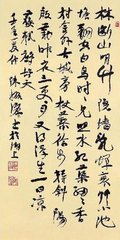 林断山明竹隐墙乱蝉衰草小池
塘翻空白鸟时时见照水红蕖细细香
村舍外古城旁杖藜徐步转斜阳
殷勤昨夜三更雨又得浮生一日凉
苏轼词